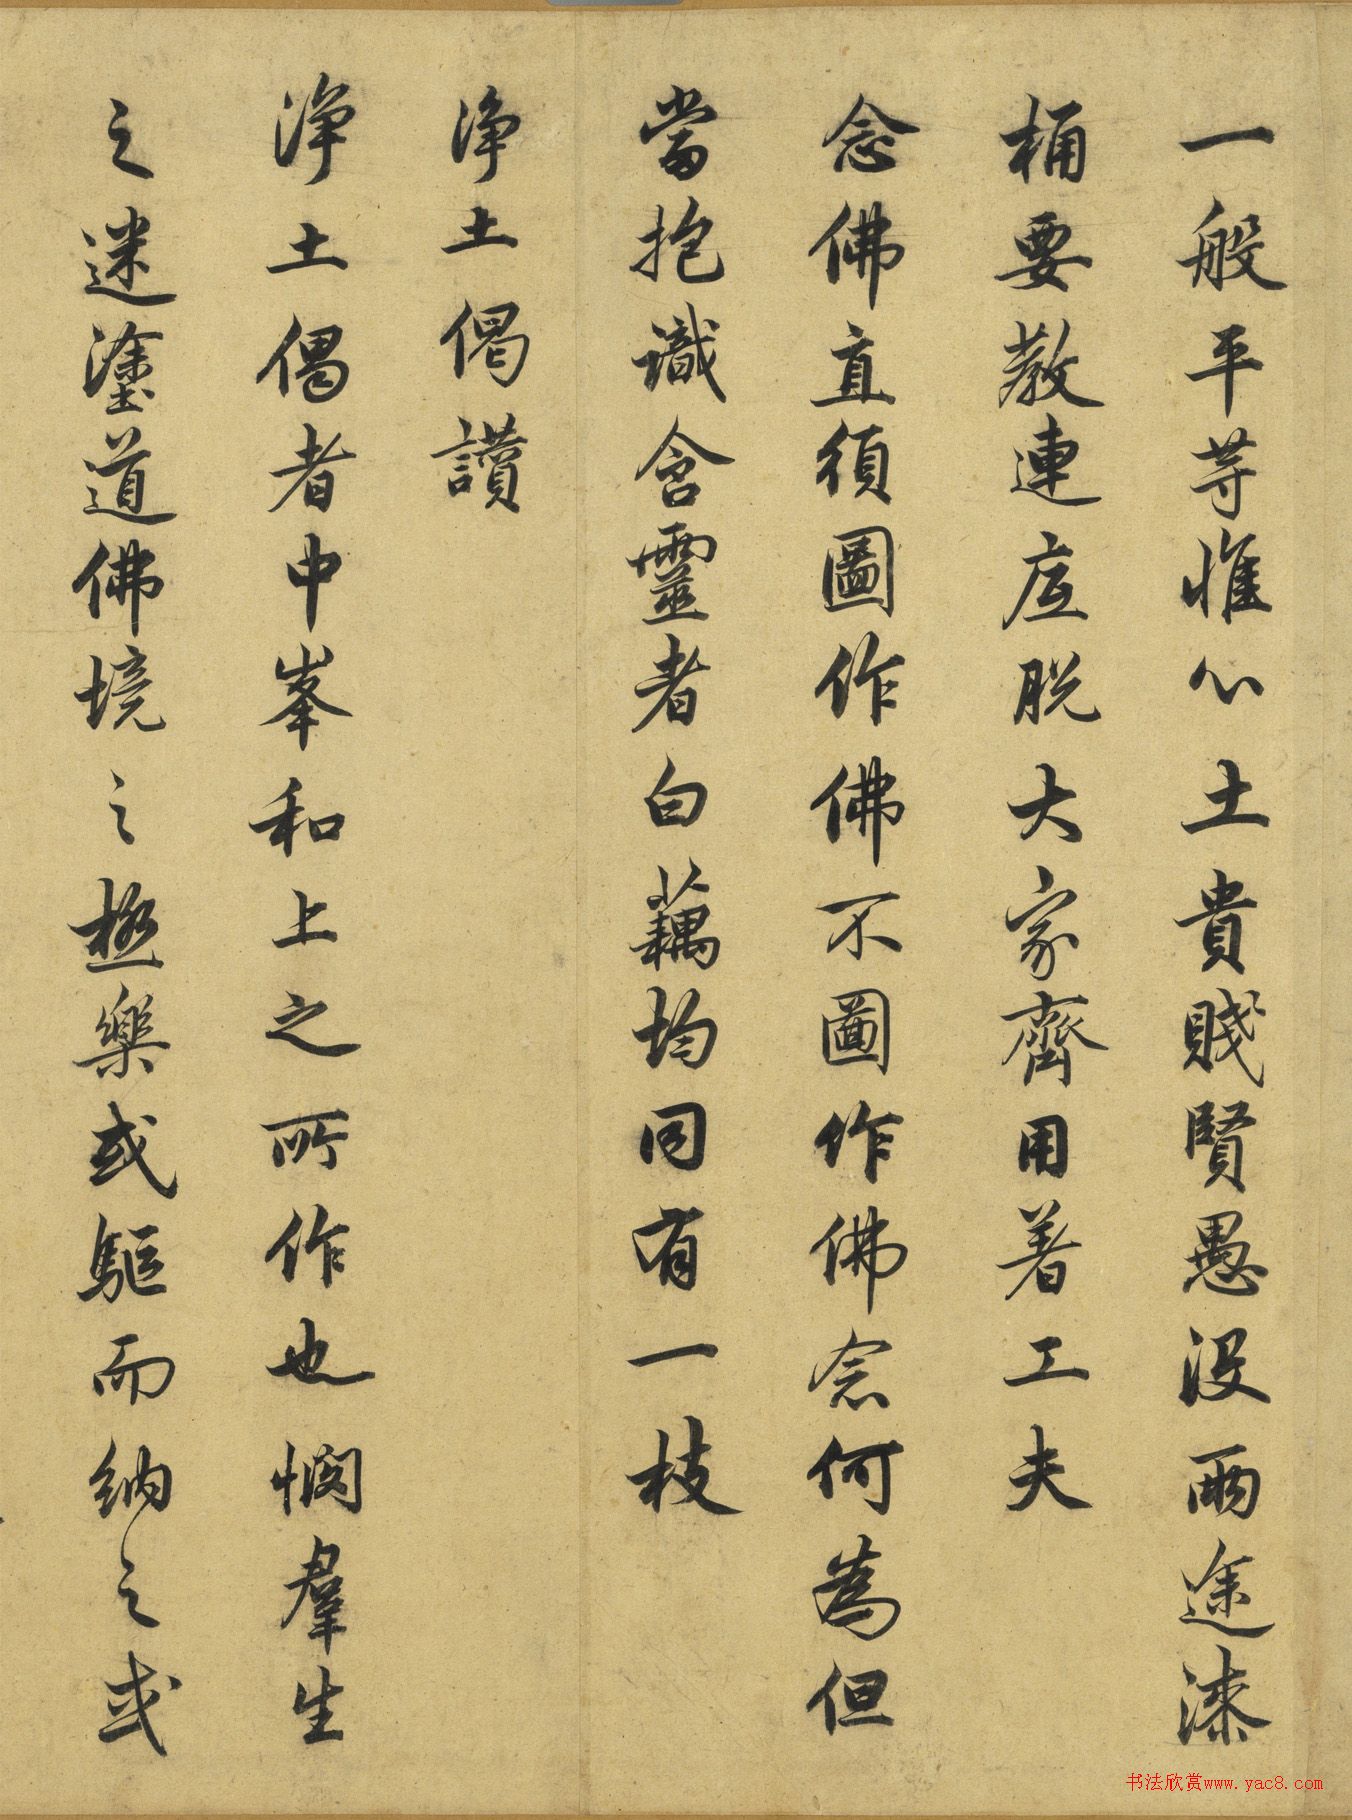 一般平等惟心土貴賤賢愚没兩途漆
桶要教連底脱大家齊用著工夫
念佛直須圖作佛不圖作佛念何為但
當抱識含靈者白藕均同有一枝
淨土偈讚
淨土偈者中峯和上之所作也憫羣生
之迷塗道佛境之極樂或驅而納之或
书法欣赏www.yac8.com